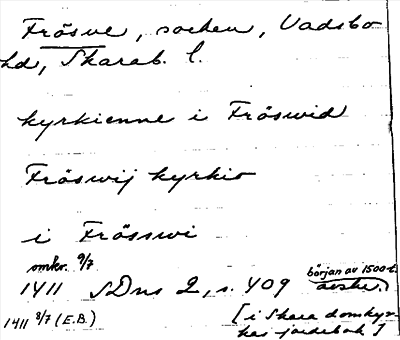 Fräsve, socken, Vadsbo
hd, Skarab. l.
kyrkienne i Fräswid
Fräswij kyrkio
i Frässwi
omkr. 9/7
1411 SDns 2, s. 409 början av 1500-t. avskr.
1411 8/7 (E.B.) [i Skara domkyr-
kas jordebok]